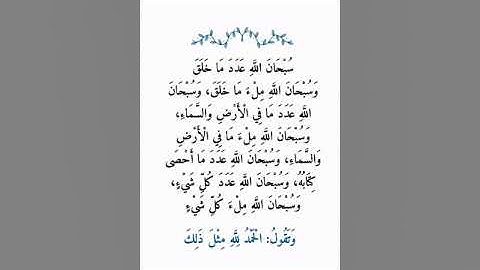 سُبْحَانَ اللَّهِ عَدَدَ مَا خَلَقَ
وَسُبْحَانَ اللَّهِ مِلْءَ مَا خَلَقَ، وَسُبْحَانَ
اللَّهِ عَدَدَ مَا فِي الْأَرْضِ وَالسَّمَاءِ،
وَسُبْحَانَ اللَّهِ مِلْءَ مَا فِي الْأَرْضِ
وَالسَّمَاءِ، وَسُبْحَانَ اللَّهِ عَدَدَ مَا أَحْصَى
كِتَابُهُ، وَسُبْحَانَ اللَّهِ عَدَدَ كُلِّ شَيْءٍ،
وَسُبْحَانَ اللَّهِ مِلْءَ كُلِّ شَيْءٍ
وَتَقُولُ: الْحَمْدُ لِلَّهِ مِثْلَ ذَلِكَ